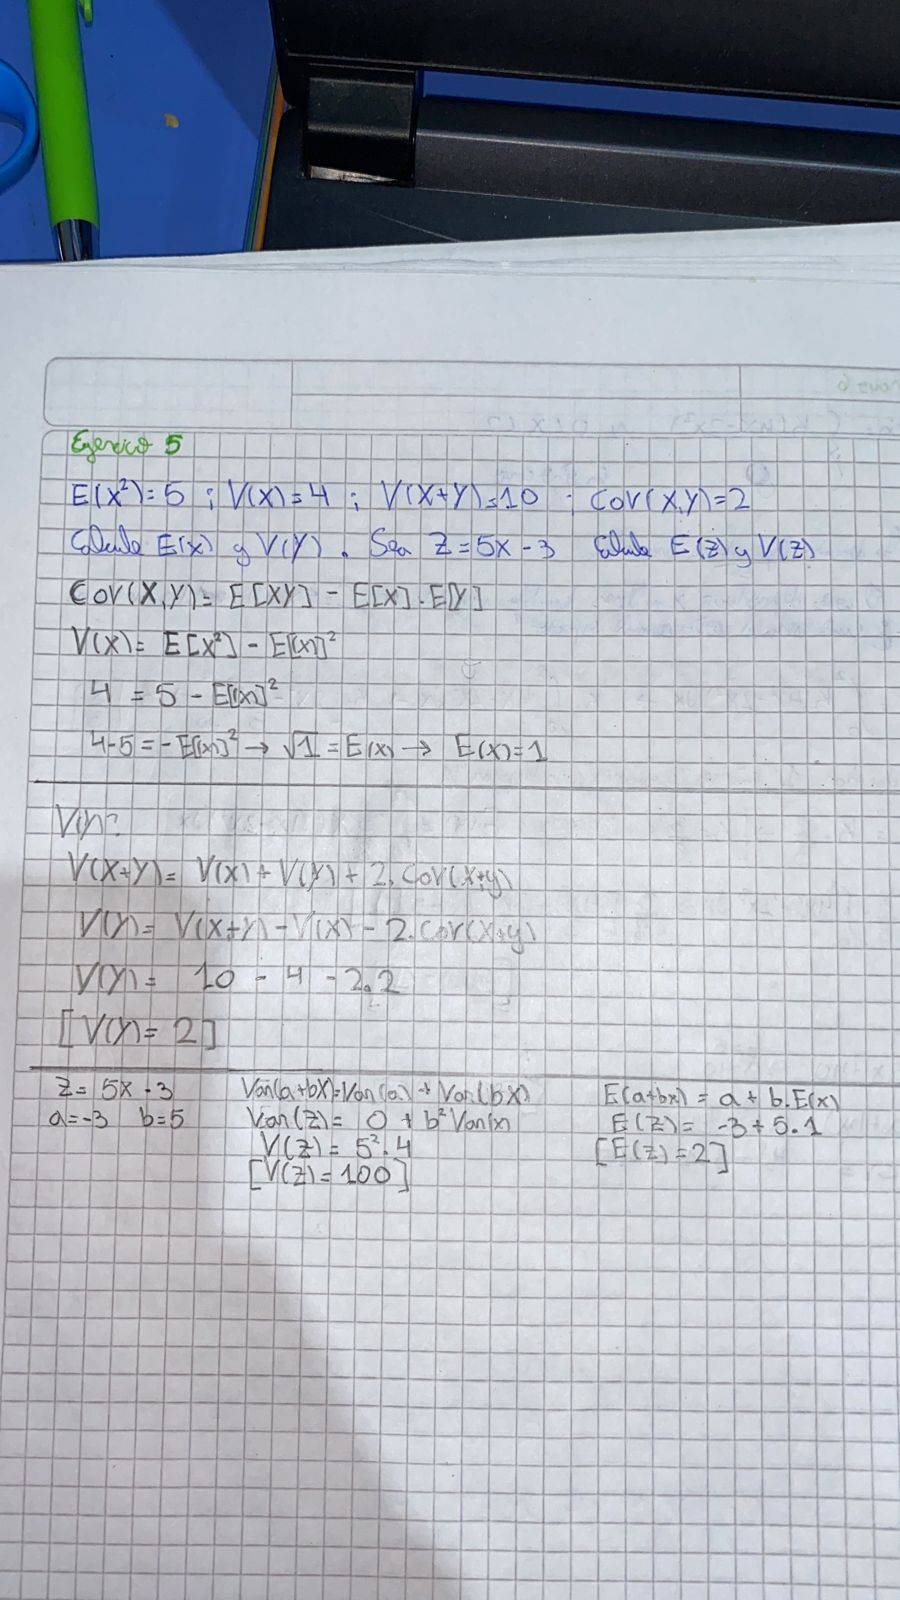 Ejercicio 5
E(x²)=5 ; V(X)=4 ; V(X+Y)=10 ; COV(X,Y)=2
Calcule E(x) y V(Y). Sea Z=5x-3 Calcule E(z) y V(z)
COV(X,Y)= E[XY] - E[X].E[Y]
V(X)= E[X²] - E[(x)]²
4 = 5 - E[(x)]²
4-5=-E[(x)]² → √1 = E(x) → E(x)=1
V(y)=
V(X+Y)= V(x)+V(Y)+2.COV(X+y)
V(Y)= V(X+Y)-V(X)-2.COV(X+y)
V(Y)= 10 - 4 - 2.2
[V(Y)= 2]
Z= 5x-3 Var(a+bX)=Var(a)+Var(bX) E(a+bx)= a+b.E(x)
a=-3 b=5 Var(z)= 0 + b²Var(x) E(z)= -3+5.1
V(z)= 5².4 [E(z)=2]
[V(z)=100]